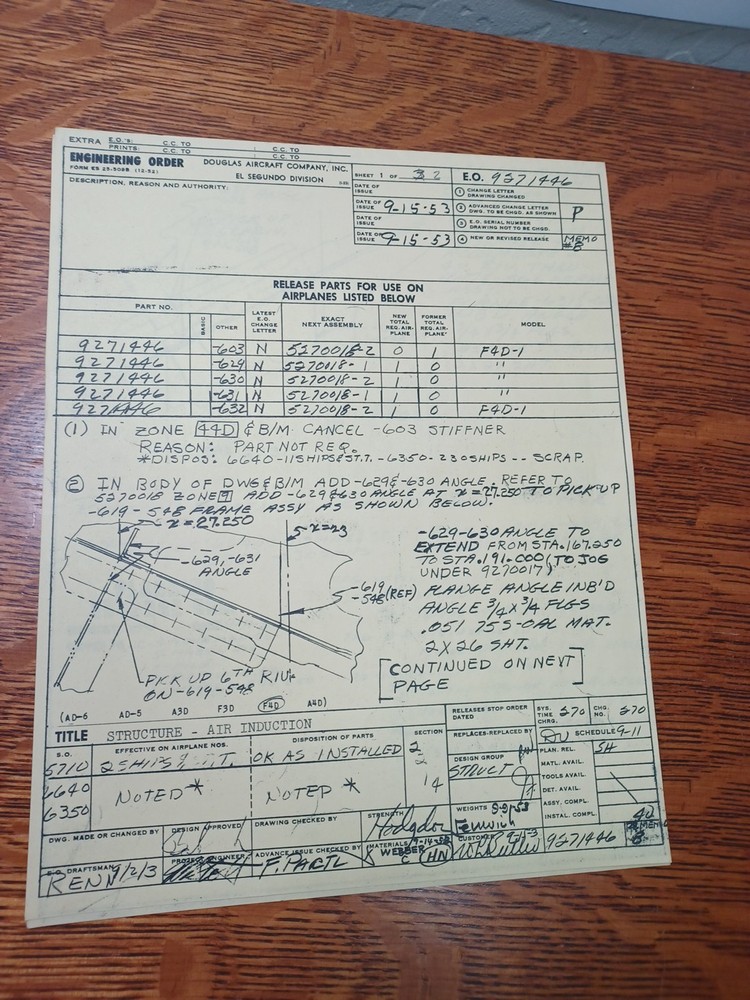 EXTRA E.O.'S: C.C. TO C.C. TO
PRINTS: C.C. TO C.C. TO
C.C. TO
ENGINEERING ORDER DOUGLAS AIRCRAFT COMPANY, INC.
FORM ES 25-508B (12-52) EL SEGUNDO DIVISION
SHEET 1 OF 2 E.O. 9271446
DESCRIPTION, REASON AND AUTHORITY:
DATE OF ISSUE 1 CHANGE LETTER DRAWING CHANGED
DATE OF ISSUE 9-15-53 2 ADVANCED CHANGE LETTER DWG. TO BE CHGD. AS SHOWN P
DATE OF ISSUE 3 E.O. SERIAL NUMBER DRAWING NOT TO BE CHGD.
DATE OF ISSUE 9-15-53 4 NEW OR REVISED RELEASE MEMO #8
RELEASE PARTS FOR USE ON
AIRPLANES LISTED BELOW
PART NO. BASIC OTHER LATEST E.O. CHANGE LETTER EXACT NEXT ASSEMBLY NEW TOTAL REQ. AIR-PLANE FORMER TOTAL REQ. AIR-PLANE MODEL
9271446 -603 N 5270018-2 0 1 F4D-1
9271446 -629 N 5270018-1 1 0 "
9271446 -630 N 5270018-2 1 0 "
9271446 -631 N 5270018-1 1 0 "
9271446 -632 N 5270018-2 1 0 F4D-1
(1) IN ZONE 44D & B/M CANCEL -603 STIFFNER
REASON: PART NOT REQ.
*DISPOS: 6640-11SHIPS&ST.T. -6350-230SHIPS -- SCRAP.
2 IN BODY OF DWG&B/M ADD -629&-630 ANGLE. REFER TO
5270018 ZONE 9 ADD -629&630 ANGLE AT X=27.250 TO PICK UP
-619 -548 FRAME ASSY AS SHOWN BELOW.
X=27.250
X=23
-629,-631
ANGLE
-619
-548 (REF)
PICK UP 6TH RIV
ON -619-548
-629-630 ANGLE TO
EXTEND FROM STA. 167.250
TO STA. 191.000 (TO JOG
UNDER 9270017)
FLANGE ANGLE INB'D
ANGLE 3/4 X 3/4 FLGS
.051 75S-OAL MAT.
2 X 26 SHT.
[CONTINUED ON NEXT
PAGE]
(AD-6 AD-5 A3D F3D F4D A4D)
TITLE STRUCTURE - AIR INDUCTION
RELEASES STOP ORDER DATED
SYS. TIME CHRG. 270 CHG. NO. 270
REPLACES-REPLACED BY
SCHEDULE 9-11
S.O. EFFECTIVE ON AIRPLANE NOS. DISPOSITION OF PARTS SECTION
5710 2 SHIPS OK AS INSTALLED 2
2
6640 NOTED* NOTED* 14
6350
DESIGN GROUP
STRUCT
PLAN. REL. SH
MATL. AVAIL.
TOOLS AVAIL.
DET. AVAIL.
ASSY. COMPL.
INSTAL. COMPL.
WEIGHTS
STRENGTH
DWG. MADE OR CHANGED BY DESIGN APPROVED DRAWING CHECKED BY
DRAFTSMAN PROJECT ENGINEER ADVANCE ISSUE CHECKED BY MATERIALS CUSTOMER
RENN F. PARTL WEBBER HN 9271446